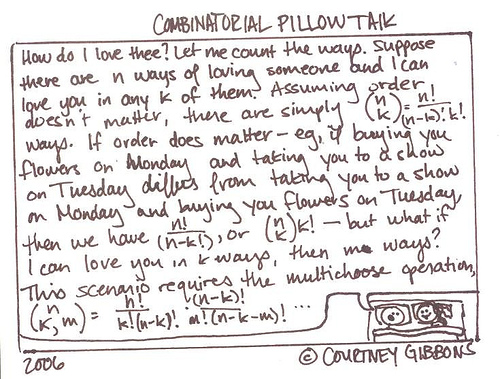 COMBINATORIAL PILLOW TALK
How do I love thee? Let me count the ways. Suppose
there are n ways of loving someone and I can
love you in any k of them. Assuming order
doesn't matter, there are simply (n k) = n!/(n-k)!k!
ways. If order does matter – eg, if buying you
flowers on Monday and taking you to a show
on Tuesday differs from taking you to a show
on Monday and buying you flowers on Tuesday,
then we have n!/(n-k!), or (n k)k! – but what if
I can love you in k ways, then m ways?
This scenario requires the multichoose operation,
(n k,m) = n!/k!(n-k)! · (n-k)!/m!(n-k-m)! ...
2006
© COURTNEY GIBBONS